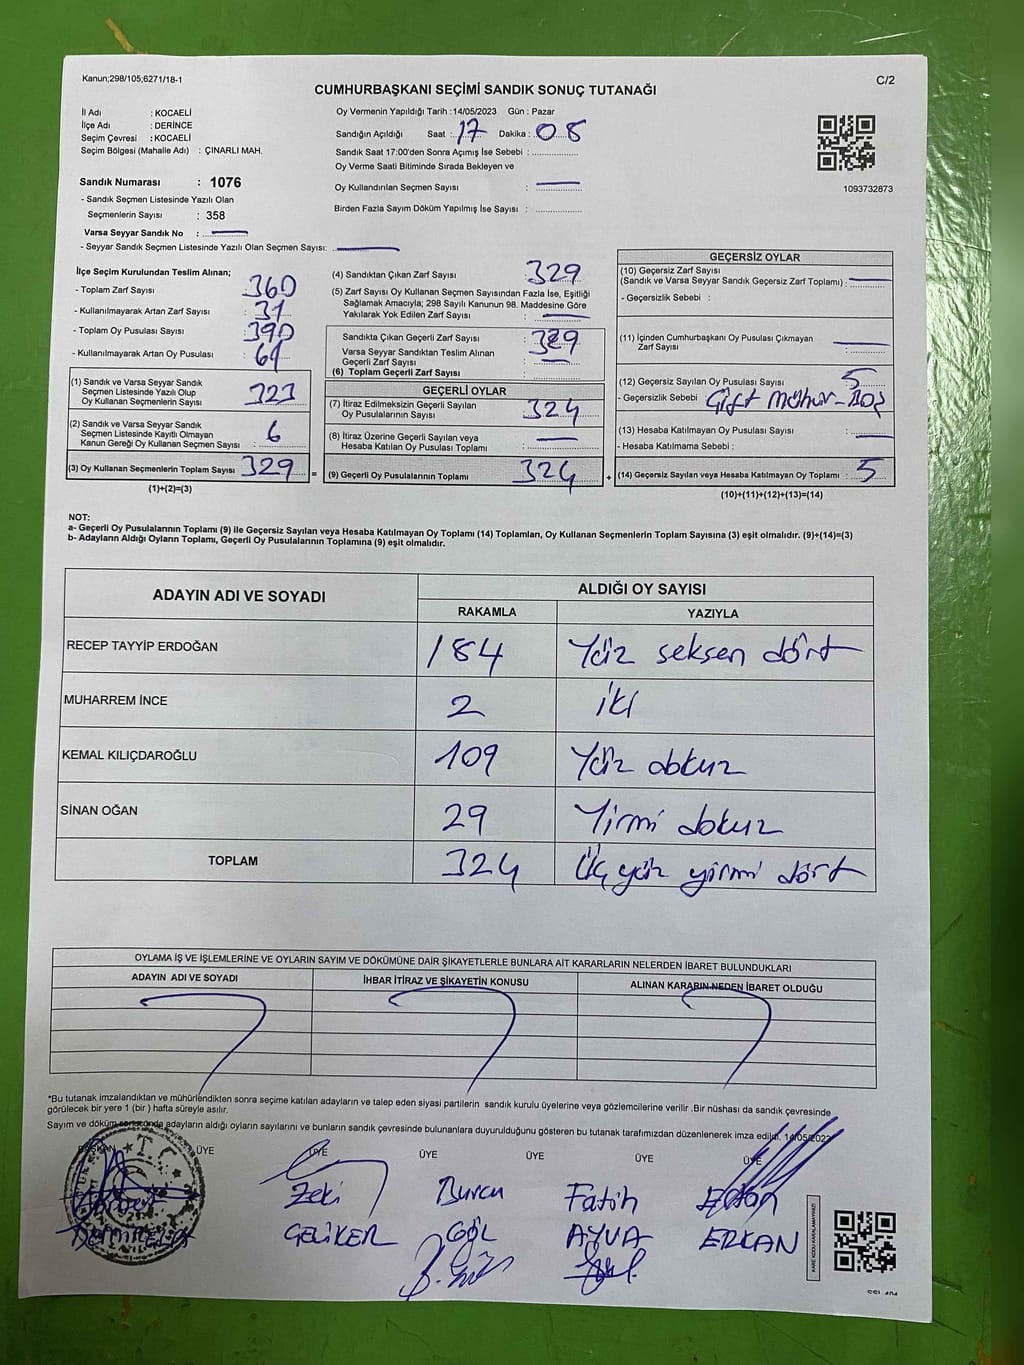 Kanun;298/105;6271/18-1
C/2
CUMHURBAŞKANI SEÇİMİ SANDIK SONUÇ TUTANAĞI
İl Adı : KOCAELİ
İlçe Adı : DERİNCE
Seçim Çevresi : KOCAELİ
Seçim Bölgesi (Mahalle Adı) : ÇINARLI MAH.
Oy Vermenin Yapıldığı Tarih : 14/05/2023 Gün : Pazar
Sandığın Açıldığı Saat : 17 Dakika : 08
Sandık Saat 17:00'den Sonra Açımış İse Sebebi :
Oy Verme Saati Bitiminde Sırada Bekleyen ve
Oy Kullandırılan Seçmen Sayısı : —
Birden Fazla Sayım Döküm Yapılmış İse Sayısı :
1093732873
Sandık Numarası : 1076
- Sandık Seçmen Listesinde Yazılı Olan
Seçmenlerin Sayısı : 358
Varsa Seyyar Sandık No : —
- Seyyar Sandık Seçmen Listesinde Yazılı Olan Seçmen Sayısı: —
İlçe Seçim Kurulundan Teslim Alınan;
- Toplam Zarf Sayısı : 360
- Kullanılmayarak Artan Zarf Sayısı : 31
- Toplam Oy Pusulası Sayısı : 390
- Kullanılmayarak Artan Oy Pusulası : 61
(1) Sandık ve Varsa Seyyar Sandık
Seçmen Listesinde Yazılı Olup
Oy Kullanan Seçmenlerin Sayısı : 323
(2) Sandık ve Varsa Seyyar Sandık
Seçmen Listesinde Kayıtlı Olmayan
Kanun Gereği Oy Kullanan Seçmen Sayısı : 6
(3) Oy Kullanan Seçmenlerin Toplam Sayısı : 329 =
(1)+(2)=(3)
(4) Sandıktan Çıkan Zarf Sayısı : 329
(5) Zarf Sayısı Oy Kullanan Seçmen Sayısından Fazla İse, Eşitliği
Sağlamak Amacıyla; 298 Sayılı Kanunun 98. Maddesine Göre
Yakılarak Yok Edilen Zarf Sayısı : —
Sandıkta Çıkan Geçerli Zarf Sayısı : 329
Varsa Seyyar Sandıktan Teslim Alınan
Geçerli Zarf Sayısı : —
(6) Toplam Geçerli Zarf Sayısı :
GEÇERLİ OYLAR
(7) İtiraz Edilmeksizin Geçerli Sayılan
Oy Pusulalarının Sayısı : 324
(8) İtiraz Üzerine Geçerli Sayılan veya
Hesaba Katılan Oy Pusulası Toplamı : —
(9) Geçerli Oy Pusulalarının Toplamı : 324 +
GEÇERSİZ OYLAR
(10) Geçersiz Zarf Sayısı
(Sandık ve Varsa Seyyar Sandık Geçersiz Zarf Toplamı) : —
- Geçersizlik Sebebi :
(11) İçinden Cumhurbaşkanı Oy Pusulası Çıkmayan
Zarf Sayısı : —
(12) Geçersiz Sayılan Oy Pusulası Sayısı : 5
- Geçersizlik Sebebi : Çift Mühür-Boş
(13) Hesaba Katılmayan Oy Pusulası Sayısı : —
- Hesaba Katılmama Sebebi :
(14) Geçersiz Sayılan veya Hesaba Katılmayan Oy Toplamı : 5
(10)+(11)+(12)+(13)=(14)
NOT:
a- Geçerli Oy Pusulalarının Toplamı (9) ile Geçersiz Sayılan veya Hesaba Katılmayan Oy Toplamı (14) Toplamları, Oy Kullanan Seçmenlerin Toplam Sayısına (3) eşit olmalıdır. (9)+(14)=(3)
b- Adayların Aldığı Oyların Toplamı, Geçerli Oy Pusulalarının Toplamına (9) eşit olmalıdır.
ADAYIN ADI VE SOYADI
ALDIĞI OY SAYISI
RAKAMLA YAZIYLA
RECEP TAYYİP ERDOĞAN 184 Yüz seksen dört
MUHARREM İNCE 2 iki
KEMAL KILIÇDAROĞLU 109 Yüz dokuz
SİNAN OĞAN 29 Yirmi dokuz
TOPLAM 324 Üç yüz yirmi dört
OYLAMA İŞ VE İŞLEMLERİNE VE OYLARIN SAYIM VE DÖKÜMÜNE DAİR ŞİKAYETLERLE BUNLARA AİT KARARLARIN NELERDEN İBARET BULUNDUKLARI
ADAYIN ADI VE SOYADI İHBAR İTİRAZ VE ŞİKAYETİN KONUSU ALINAN KARARIN NEDEN İBARET OLDUĞU
*Bu tutanak imzalandıktan ve mühürlendikten sonra seçime katılan adayların ve talep eden siyasi partilerin sandık kurulu üyelerine veya gözlemcilerine verilir .Bir nüshası da sandık çevresinde
görülecek bir yere 1 (bir ) hafta süreyle asılır.
Sayım ve döküm sonucunda adayların aldığı oyların sayılarını ve bunların sandık çevresinde bulunanlara duyurulduğunu gösteren bu tutanak tarafımızdan düzenlenerek imza edildi. 14/05/2023
BAŞKAN ÜYE ÜYE ÜYE ÜYE ÜYE ÜYE
Zeki Burcu Fatih Erkan
GELİKER GÖL AYVA ERKAN
KARE KODU KARALAMAYINIZ!